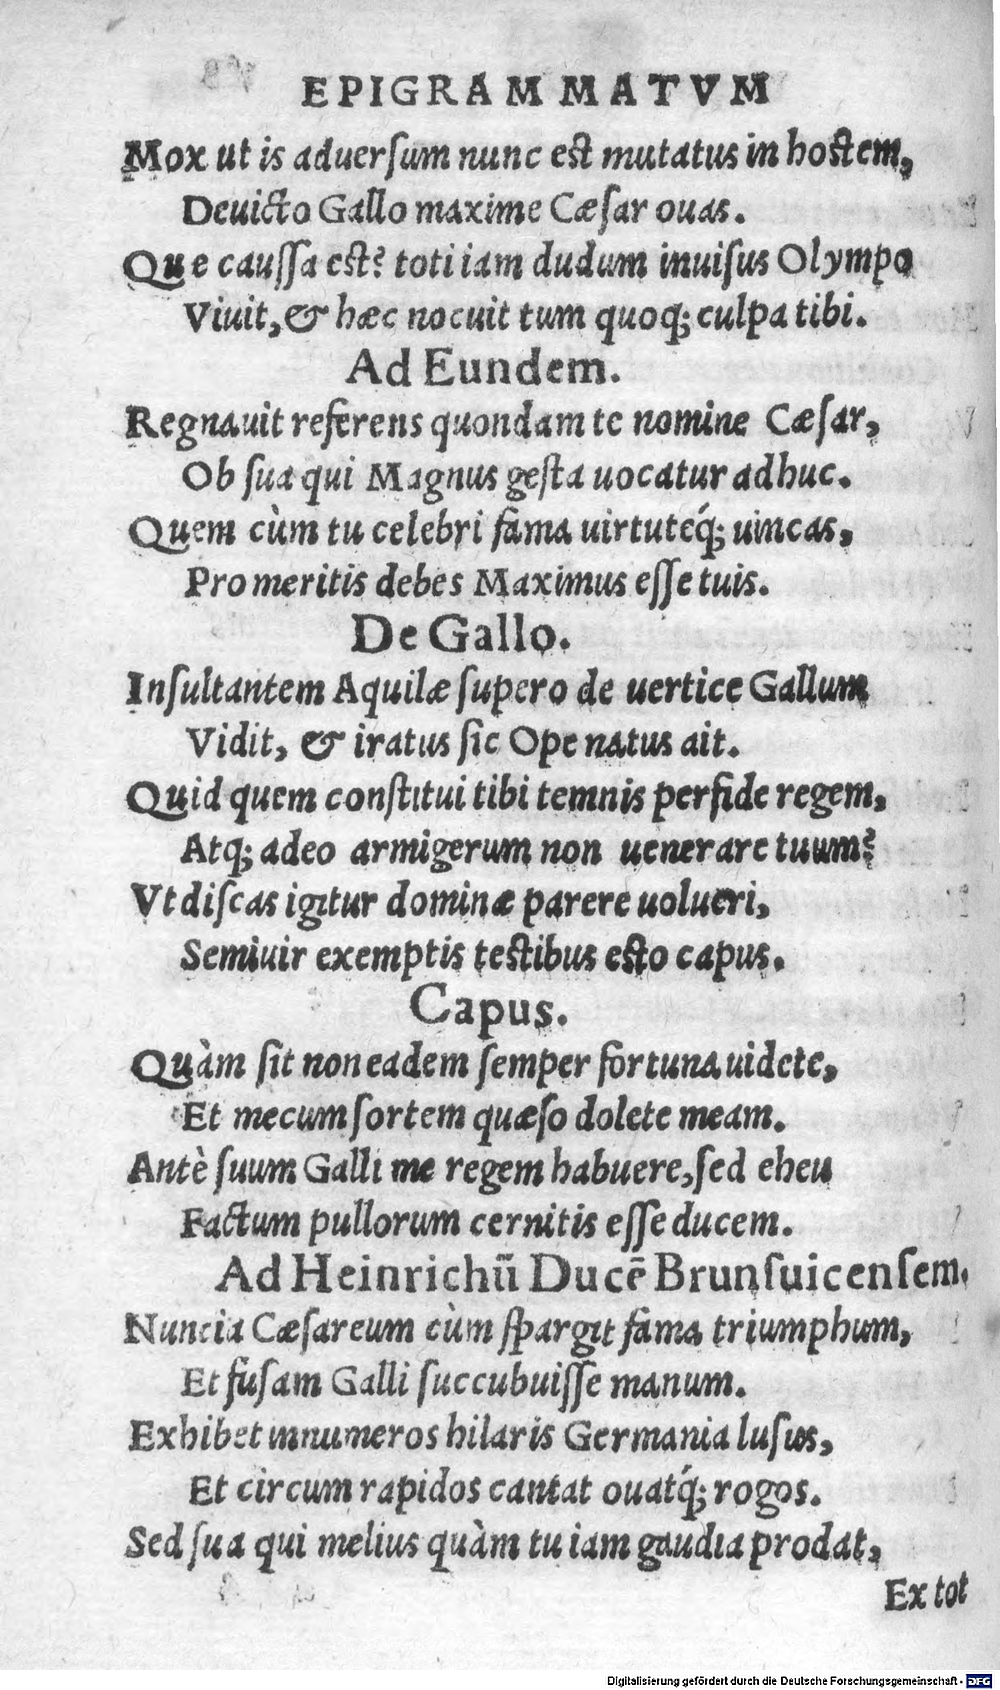 EPIGRAMMATVM
Mox ut is aduerſum nunc est mutatus in hostem,
Deuicto Gallo maxime Cæſar ouas.
Que cauſſa est? toti iam dudum inuiſus Olympo
Viuit, & hæc nocuit tum quoq; culpa tibi.
Ad Eundem.
Regnauit referens quondam te nomine Cæſar,
Ob ſua qui Magnus geſta uocatur adhuc.
Quem cùm tu celebri fama uirtuteq́; uincas,
Pro meritis debes Maximus eſſe tuis.
De Gallo.
Inſultantem Aquilæ ſupero de uertice Gallum
Vidit, & iratus ſic Ope natus ait.
Quid quem conſtitui tibi temnis perfide regem,
Atq; adeo armigerum non uenerare tuum?
Vt diſcas igitur dominæ parere uolucri,
Semiuir exemptis testibus esto capus.
Capus.
Quàm ſit non eadem ſemper fortuna uidete,
Et mecum ſortem quæſo dolete meam.
Antè ſuum Galli me regem habuere, ſed eheu
Factum pullorum cernitis eſſe ducem.
Ad Heinrichū Ducē Brunſuicenſem.
Nuncia Cæſareum cùm ſpargit fama triumphum,
Et fuſam Galli ſuccubuiſſe manum.
Exhibet innumeros hilaris Germania luſus,
Et circum rapidos cantat ouatq́; rogos.
Sed ſua qui melius quàm tu iam gaudia prodat,
Ex tot
Digitalisierung gefördert durch die Deutsche Forschungsgemeinschaft - DFG